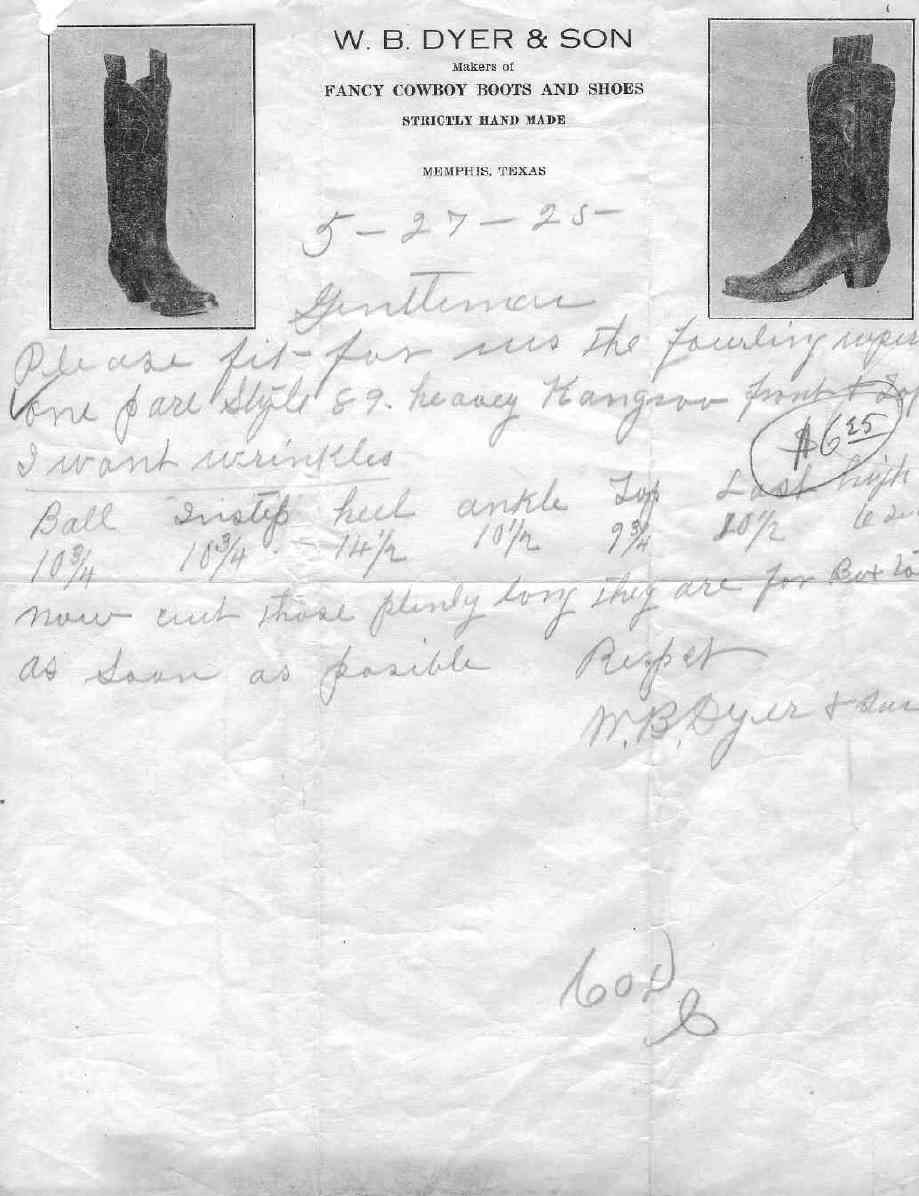 W. B. DYER & SON
Makers of
FANCY COWBOY BOOTS AND SHOES
STRICTLY HAND MADE
MEMPHIS, TEXAS
5-27-25-
Gentlemen
Please fit for us the
one pare Style 89. heavey Kangroo front &
$6 25
I want wrinkles
Ball Instep heel ankle Top Last high
10 3/4 10 3/4 14 1/2 10 1/2 9 3/4 10 1/2
now cut those plenly long they are for
as soon as posible Respct
W. B. Dyer &
COD